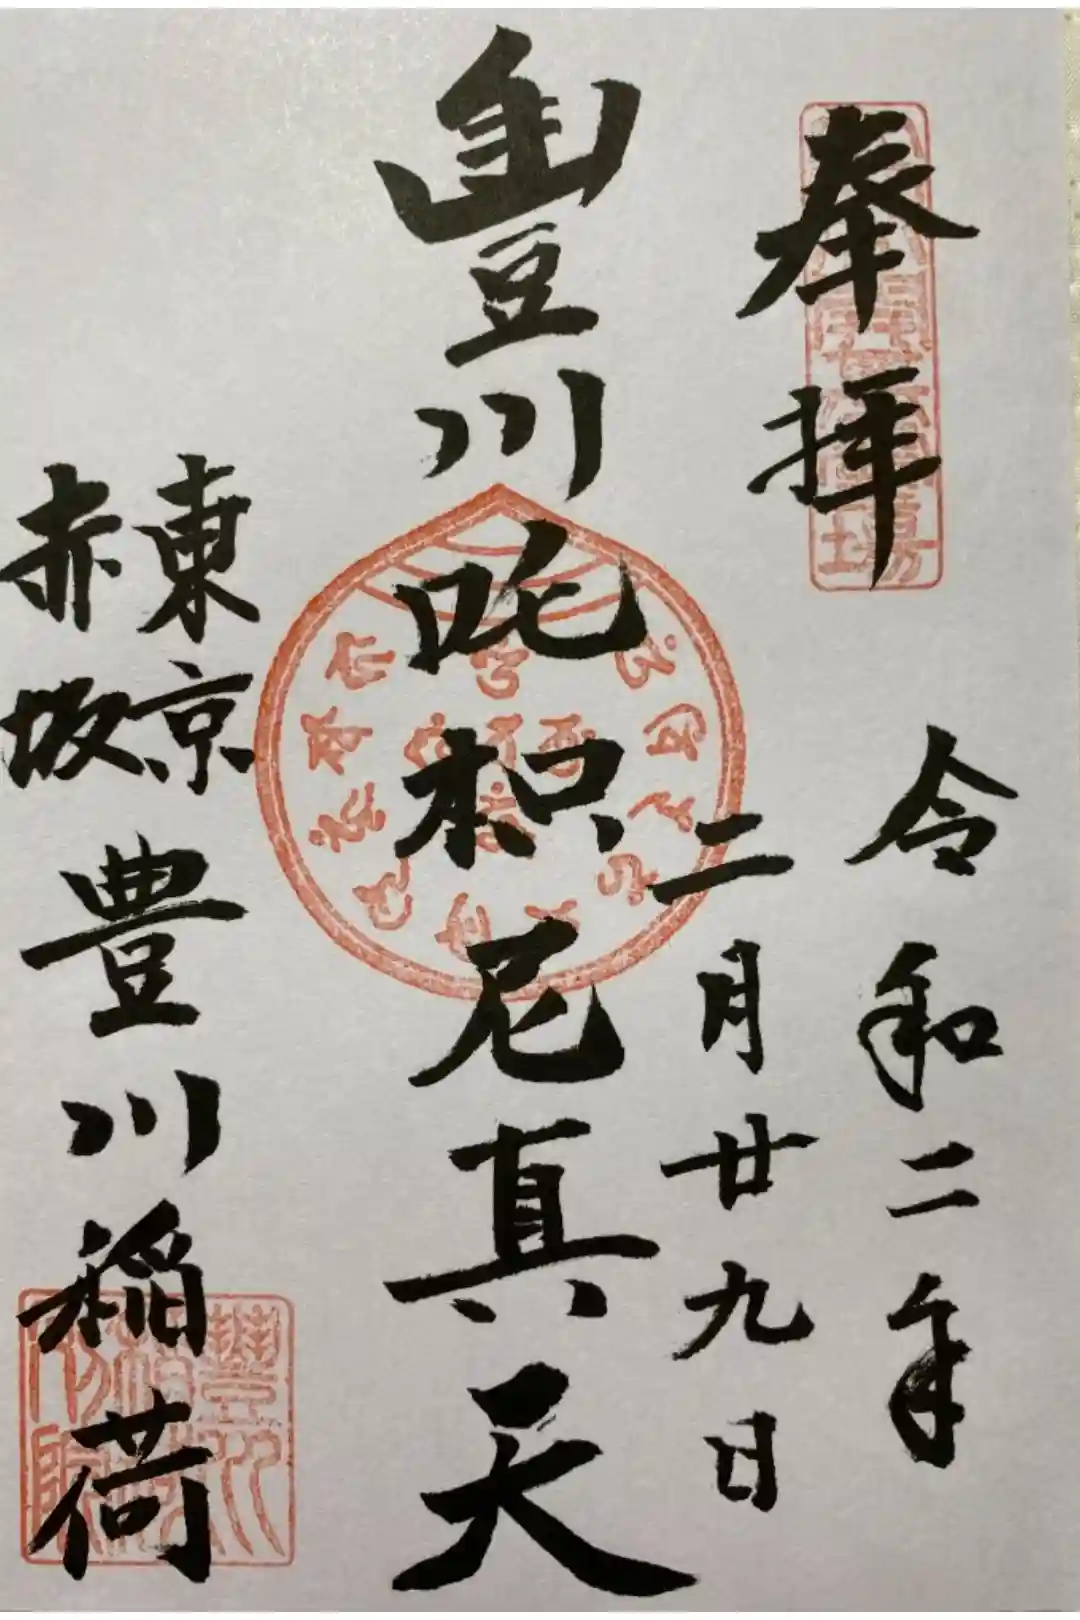 奉拝
令和二年
二月廿九日
豊川吒枳尼真天
東京
赤坂
豊川稲荷